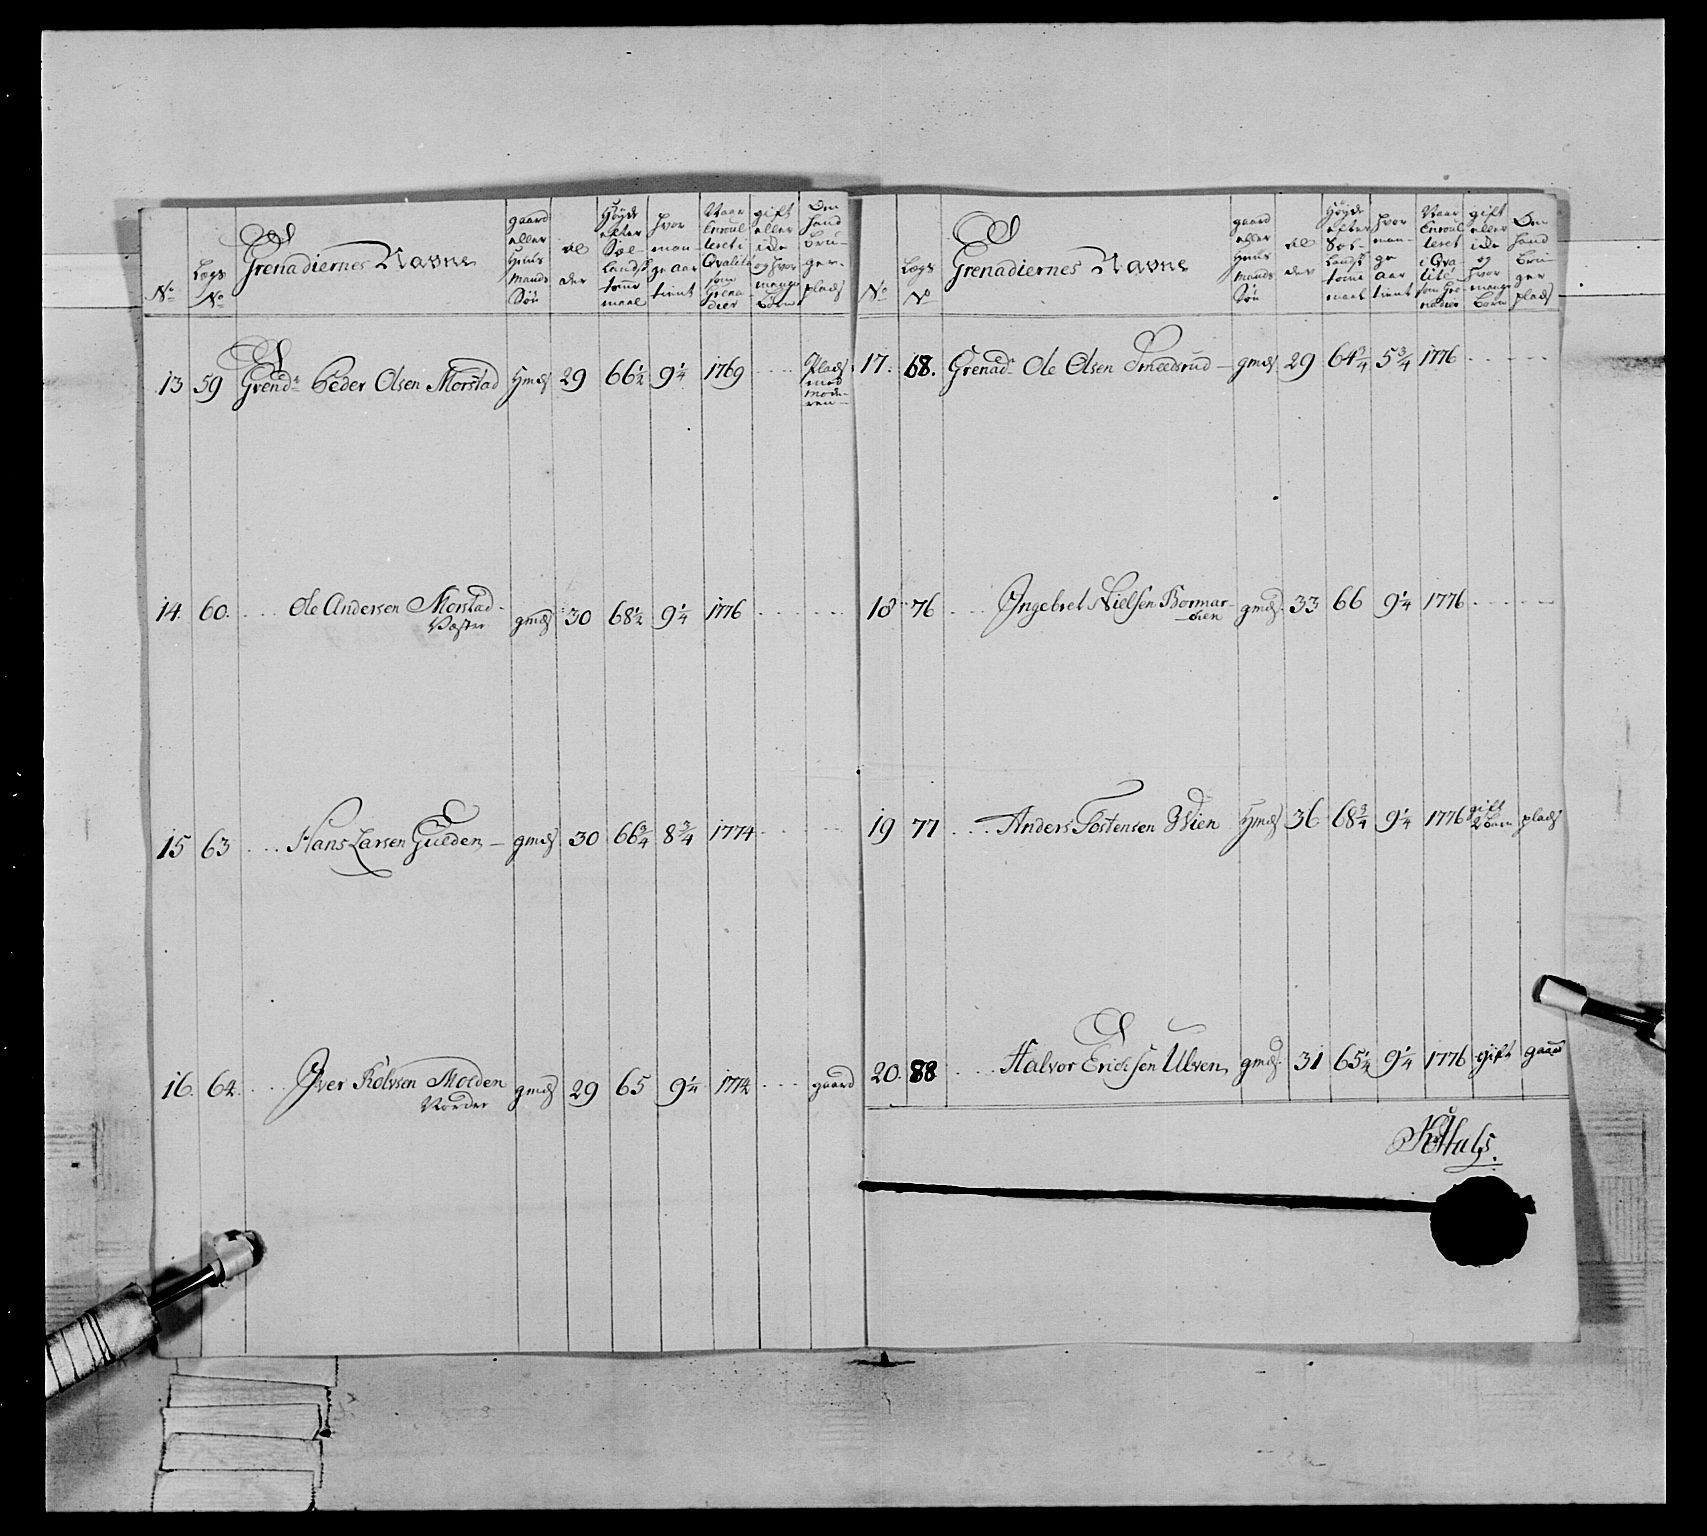 No
Lægs No
Grenadiernes Navne
gaard eller Huus Mands Søn
Al der
Høyde efter Sæl- Lands tomme maal
hvor man- ge aar tient
Naar Enroul- leret i Qvalité som Grena- dier
gift eller icke og hvor mange Børn
Om hand bru- ger plads
13 59 Grend: Peder Olsen Morstad Hmds 29 66½ 9¼ 1769 Plads med Mode- ren
14. 60. Ole Andersen Morstad
Væster gmds 30 68½ 9¼ 1776
15 63 Hans Larsen Gulden gmds 30 66¾ 8¾ 1774
16. 64. Iver Rolvsen Molden
Nordre gmds 29 65 9¼ 1774 gaard
No
Lægs No
Grenadiernes Navne
gaard eller Huus Mands Søn
Al der
Høyde efter Sæl- Lands tome maal
hvor man- ge aar tient
Naar Enroul- leret i Qva- lité som Gre- nadier
gift eller icke og hvor mange Børn
Om hand bru- ger plads
17. 68. Grenad: Ole Olsen Smedsrud gmds 29 64¾ 5¾ 1776
18 76 Ingebret Nielsen Bormar-
gmds 33 66 9¼ 1776
19 77 Anders Tostensen Wien Hmds 36 68¾ 9¼ 1776 gift 2 børn plads
20. 88 Halvor Erichsen Ulven gmds. 31 65¼ 9¼ 1776 gift gaard